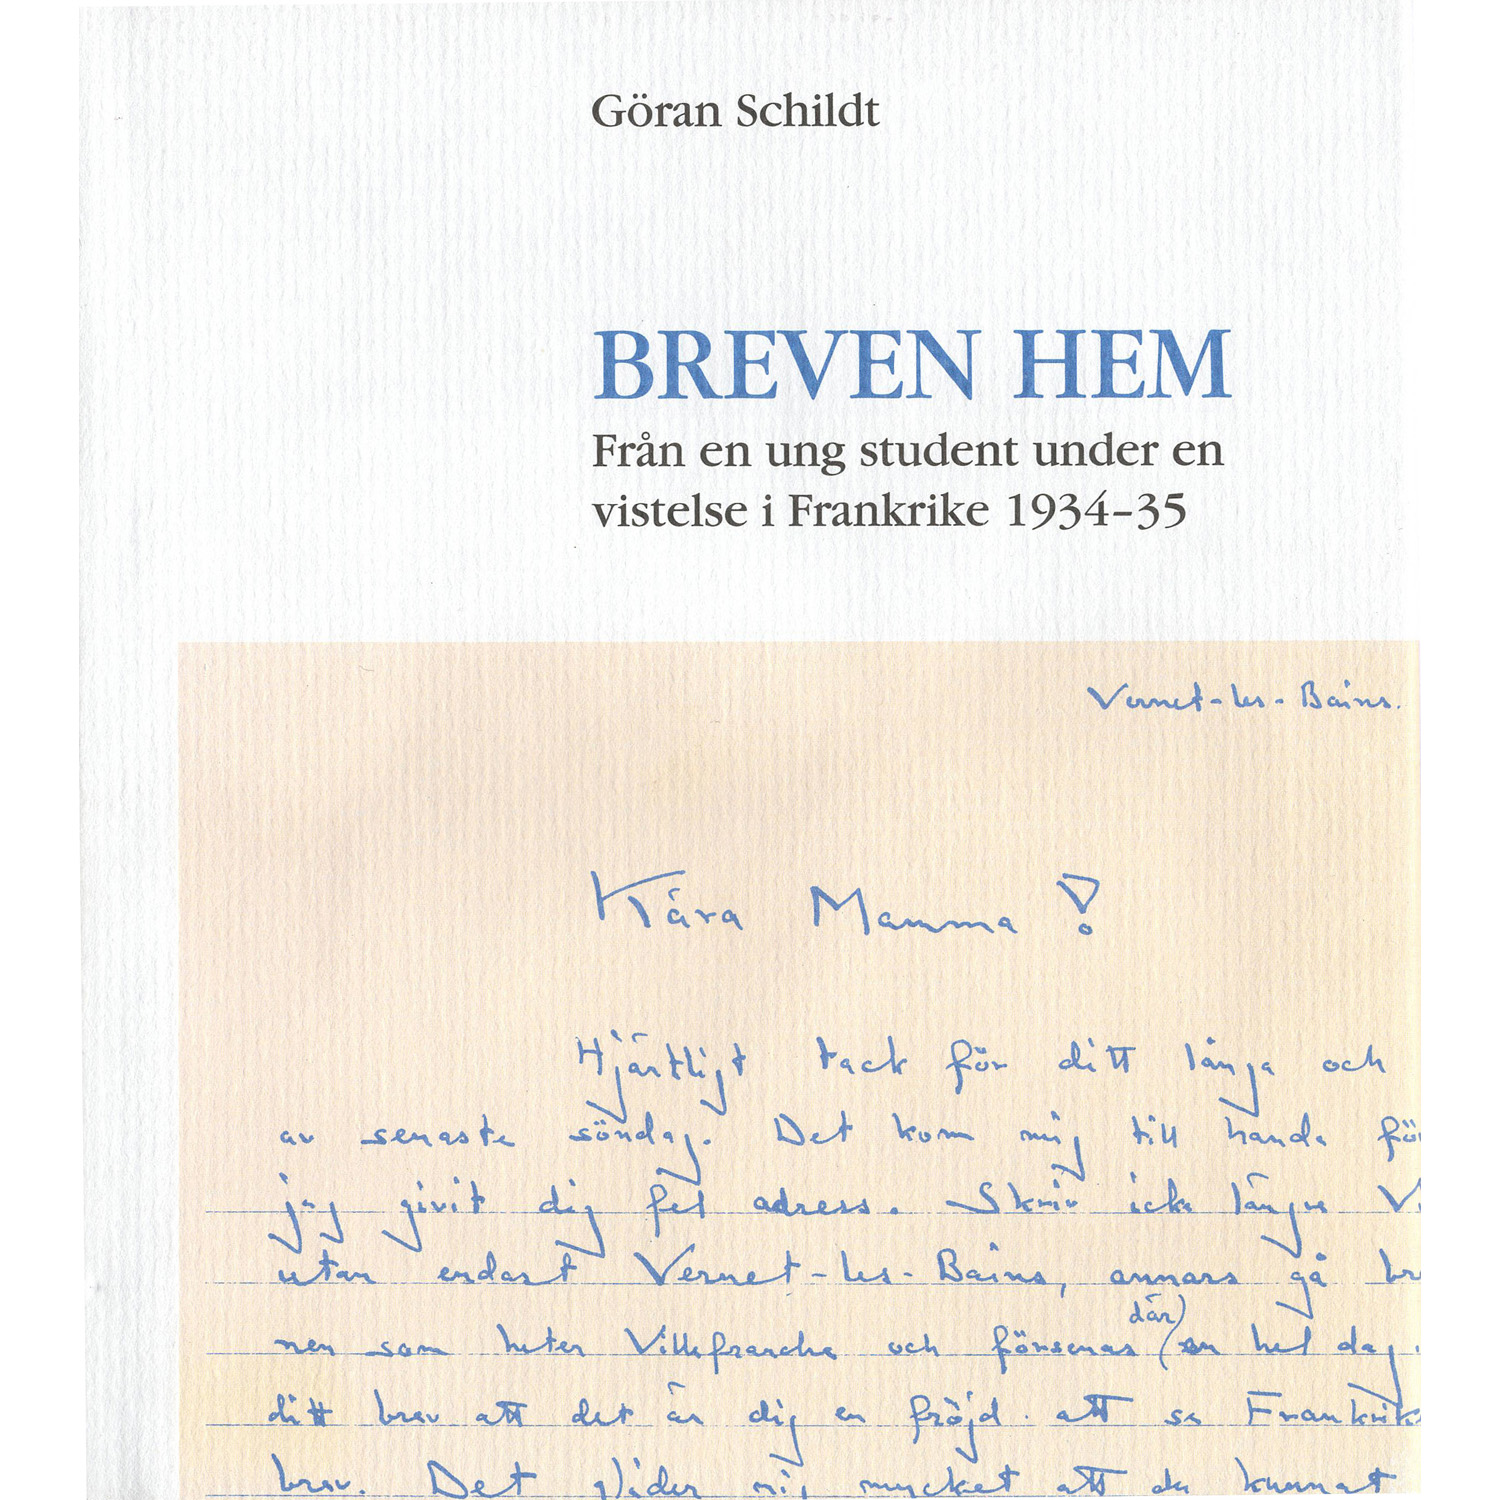 Göran Schildt
BREVEN HEM
Från en ung student under en
vistelse i Frankrike 1934–35
Vernet-les-Bains.
Kära Mamma!
Hjärtligt tack för ditt långa och
av senaste söndag. Det kom mig till handa
jag givit dig fel adress. Skriv icke längre
utan endast Vernet-les-Bains, annars gå
där
nen som heter Villefranche och försenas (en hel dag.
ditt brev att det är dig en fröjd att se
brev. Det gläder mig mycket att du kunnat